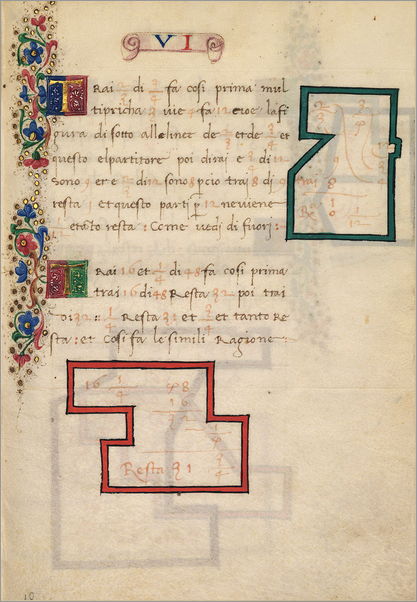 VI
Trai 2/3 di 3/4 fa cosi prima mul
tipricha 3 vie 4 fa 12 cioe lafi
gura di sotto alle linee de 2/3 et de 3/4 et
questo el partitore poi dirai e 3/4 di 12
sono 9 er e 2/3 di 12 sono 8 pero trai 8 di 9
resta 1 et questo parti p 12 ne viene
etāto resta : Come vedi di fuori :
2/3 3/4
9
8
1 12
Trai 16 et 1/4 di 48 fa cosi prima
trai 16 di 48 Resta 32 poi trai
di 32 :: Resta 31 et 3/4 et tanto Re
sta : et Cosi fa le simili Ragione
16 1/4 48
16
32
1/4
Resta 31 3/4
10